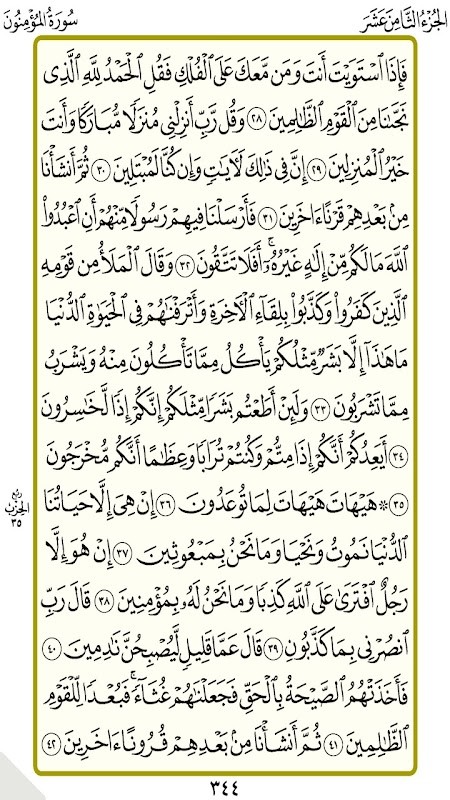 الجُزْءُ الثَّامِنَ عَشَرَ
سُورَةُ المُؤْمِنُونَ
فَإِذَا ٱسْتَوَيْتَ أَنتَ وَمَن مَّعَكَ عَلَى ٱلْفُلْكِ فَقُلِ ٱلْحَمْدُ لِلَّهِ ٱلَّذِى
نَجَّىٰنَا مِنَ ٱلْقَوْمِ ٱلظَّـٰلِمِينَ ٢٨ وَقُل رَّبِّ أَنزِلْنِى مُنزَلًا مُّبَارَكًا وَأَنتَ
خَيْرُ ٱلْمُنزِلِينَ ٢٩ إِنَّ فِى ذَٰلِكَ لَـَٔايَـٰتٍ وَإِن كُنَّا لَمُبْتَلِينَ ٣٠ ثُمَّ أَنشَأْنَا
مِنۢ بَعْدِهِمْ قَرْنًا ءَاخَرِينَ ٣١ فَأَرْسَلْنَا فِيهِمْ رَسُولًا مِّنْهُمْ أَنِ ٱعْبُدُوا۟
ٱللَّهَ مَا لَكُم مِّنْ إِلَـٰهٍ غَيْرُهُۥٓ ۖ أَفَلَا تَتَّقُونَ ٣٢ وَقَالَ ٱلْمَلَأُ مِن قَوْمِهِ
ٱلَّذِينَ كَفَرُوا۟ وَكَذَّبُوا۟ بِلِقَآءِ ٱلْـَٔاخِرَةِ وَأَتْرَفْنَـٰهُمْ فِى ٱلْحَيَوٰةِ ٱلدُّنْيَا
مَا هَـٰذَآ إِلَّا بَشَرٌ مِّثْلُكُمْ يَأْكُلُ مِمَّا تَأْكُلُونَ مِنْهُ وَيَشْرَبُ
مِمَّا تَشْرَبُونَ ٣٣ وَلَئِنْ أَطَعْتُم بَشَرًا مِّثْلَكُمْ إِنَّكُمْ إِذًا لَّخَـٰسِرُونَ
٣٤ أَيَعِدُكُمْ أَنَّكُمْ إِذَا مِتُّمْ وَكُنتُمْ تُرَابًا وَعِظَـٰمًا أَنَّكُم مُّخْرَجُونَ
٣٥ ۞ هَيْهَاتَ هَيْهَاتَ لِمَا تُوعَدُونَ ٣٦ إِنْ هِىَ إِلَّا حَيَاتُنَا
ربع
الحزب
٣٥
ٱلدُّنْيَا نَمُوتُ وَنَحْيَا وَمَا نَحْنُ بِمَبْعُوثِينَ ٣٧ إِنْ هُوَ إِلَّا
رَجُلٌ ٱفْتَرَىٰ عَلَى ٱللَّهِ كَذِبًا وَمَا نَحْنُ لَهُۥ بِمُؤْمِنِينَ ٣٨ قَالَ رَبِّ
ٱنصُرْنِى بِمَا كَذَّبُونِ ٣٩ قَالَ عَمَّا قَلِيلٍ لَّيُصْبِحُنَّ نَـٰدِمِينَ ٤٠
فَأَخَذَتْهُمُ ٱلصَّيْحَةُ بِٱلْحَقِّ فَجَعَلْنَـٰهُمْ غُثَآءً ۚ فَبُعْدًا لِّلْقَوْمِ
ٱلظَّـٰلِمِينَ ٤١ ثُمَّ أَنشَأْنَا مِنۢ بَعْدِهِمْ قُرُونًا ءَاخَرِينَ ٤٢
٣٤٤